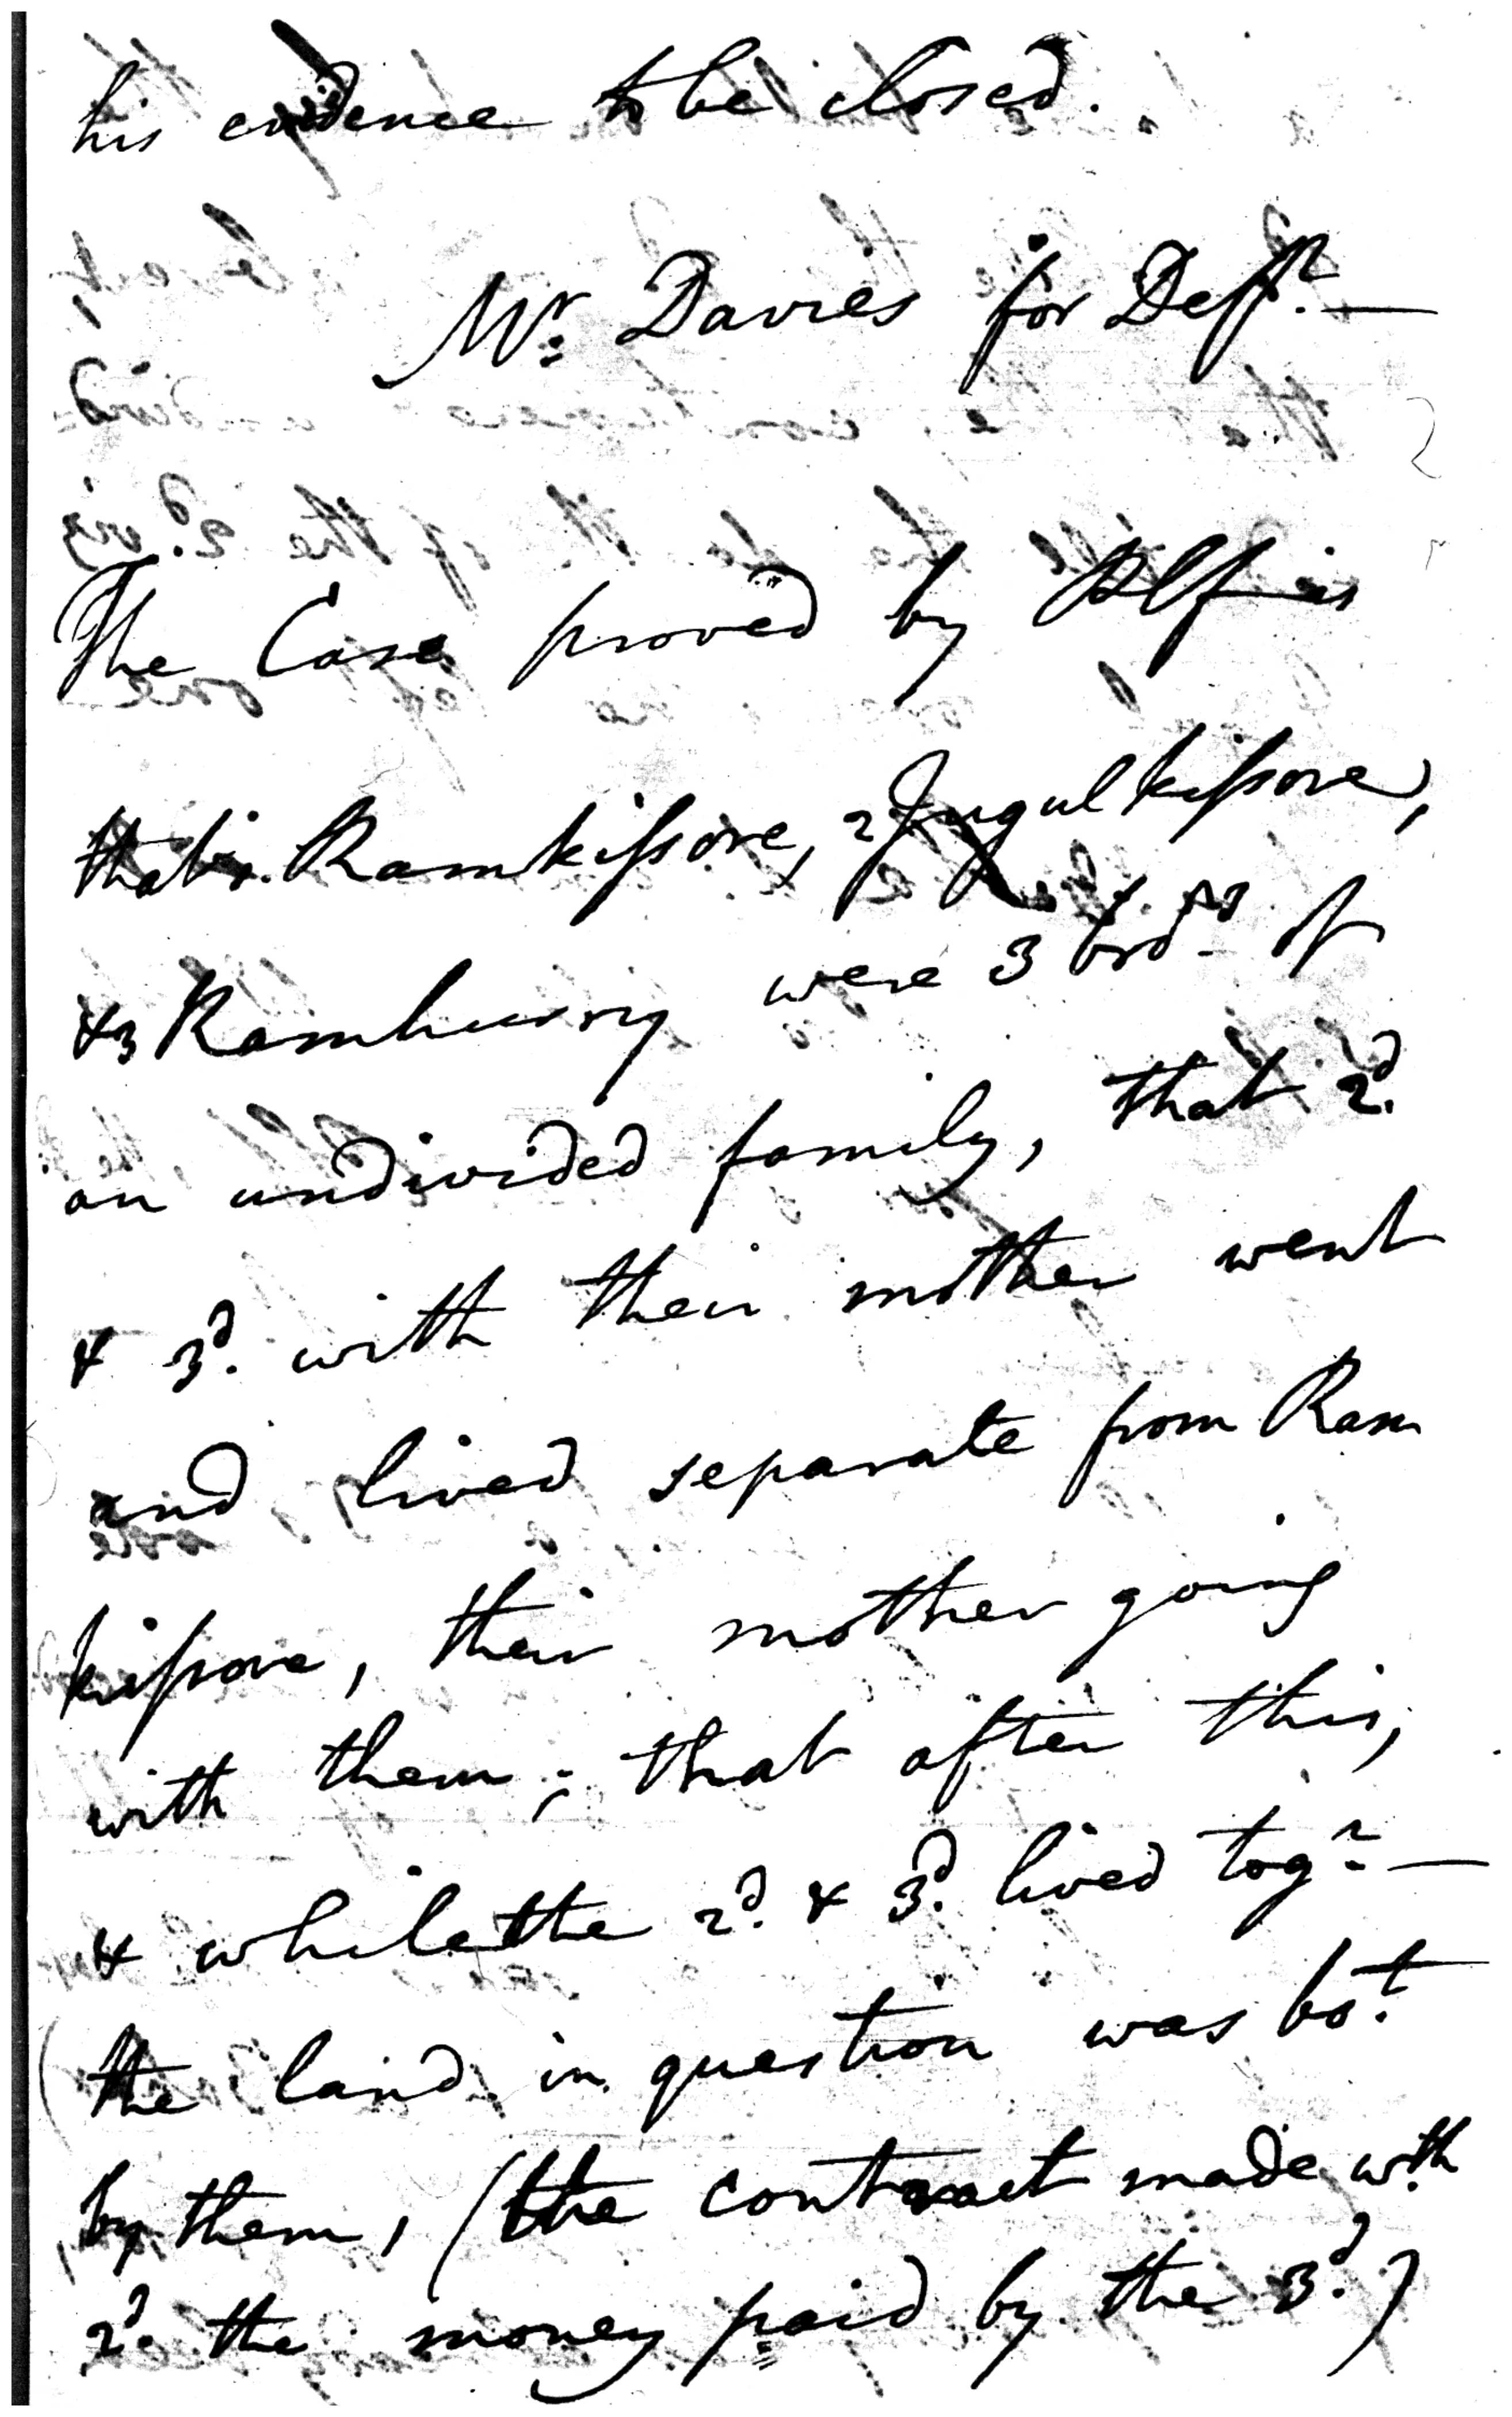 his evidence to be closed.
Mr. Davies for Deft.—
The Case proved by Plf is
that 1. Ramkissore, 2 Jugulkissore,
& 3 Ramhurry were 3 brors of
an undivided family, that 2d.
& 3d. with their mother went
and lived separate from Ram
kissore, their mother going
with them; that after this,
& while the 2d. & 3d. lived togr.—
the land in question was bot.
by them, (the contract made with
2d. the money paid by the 3d.)